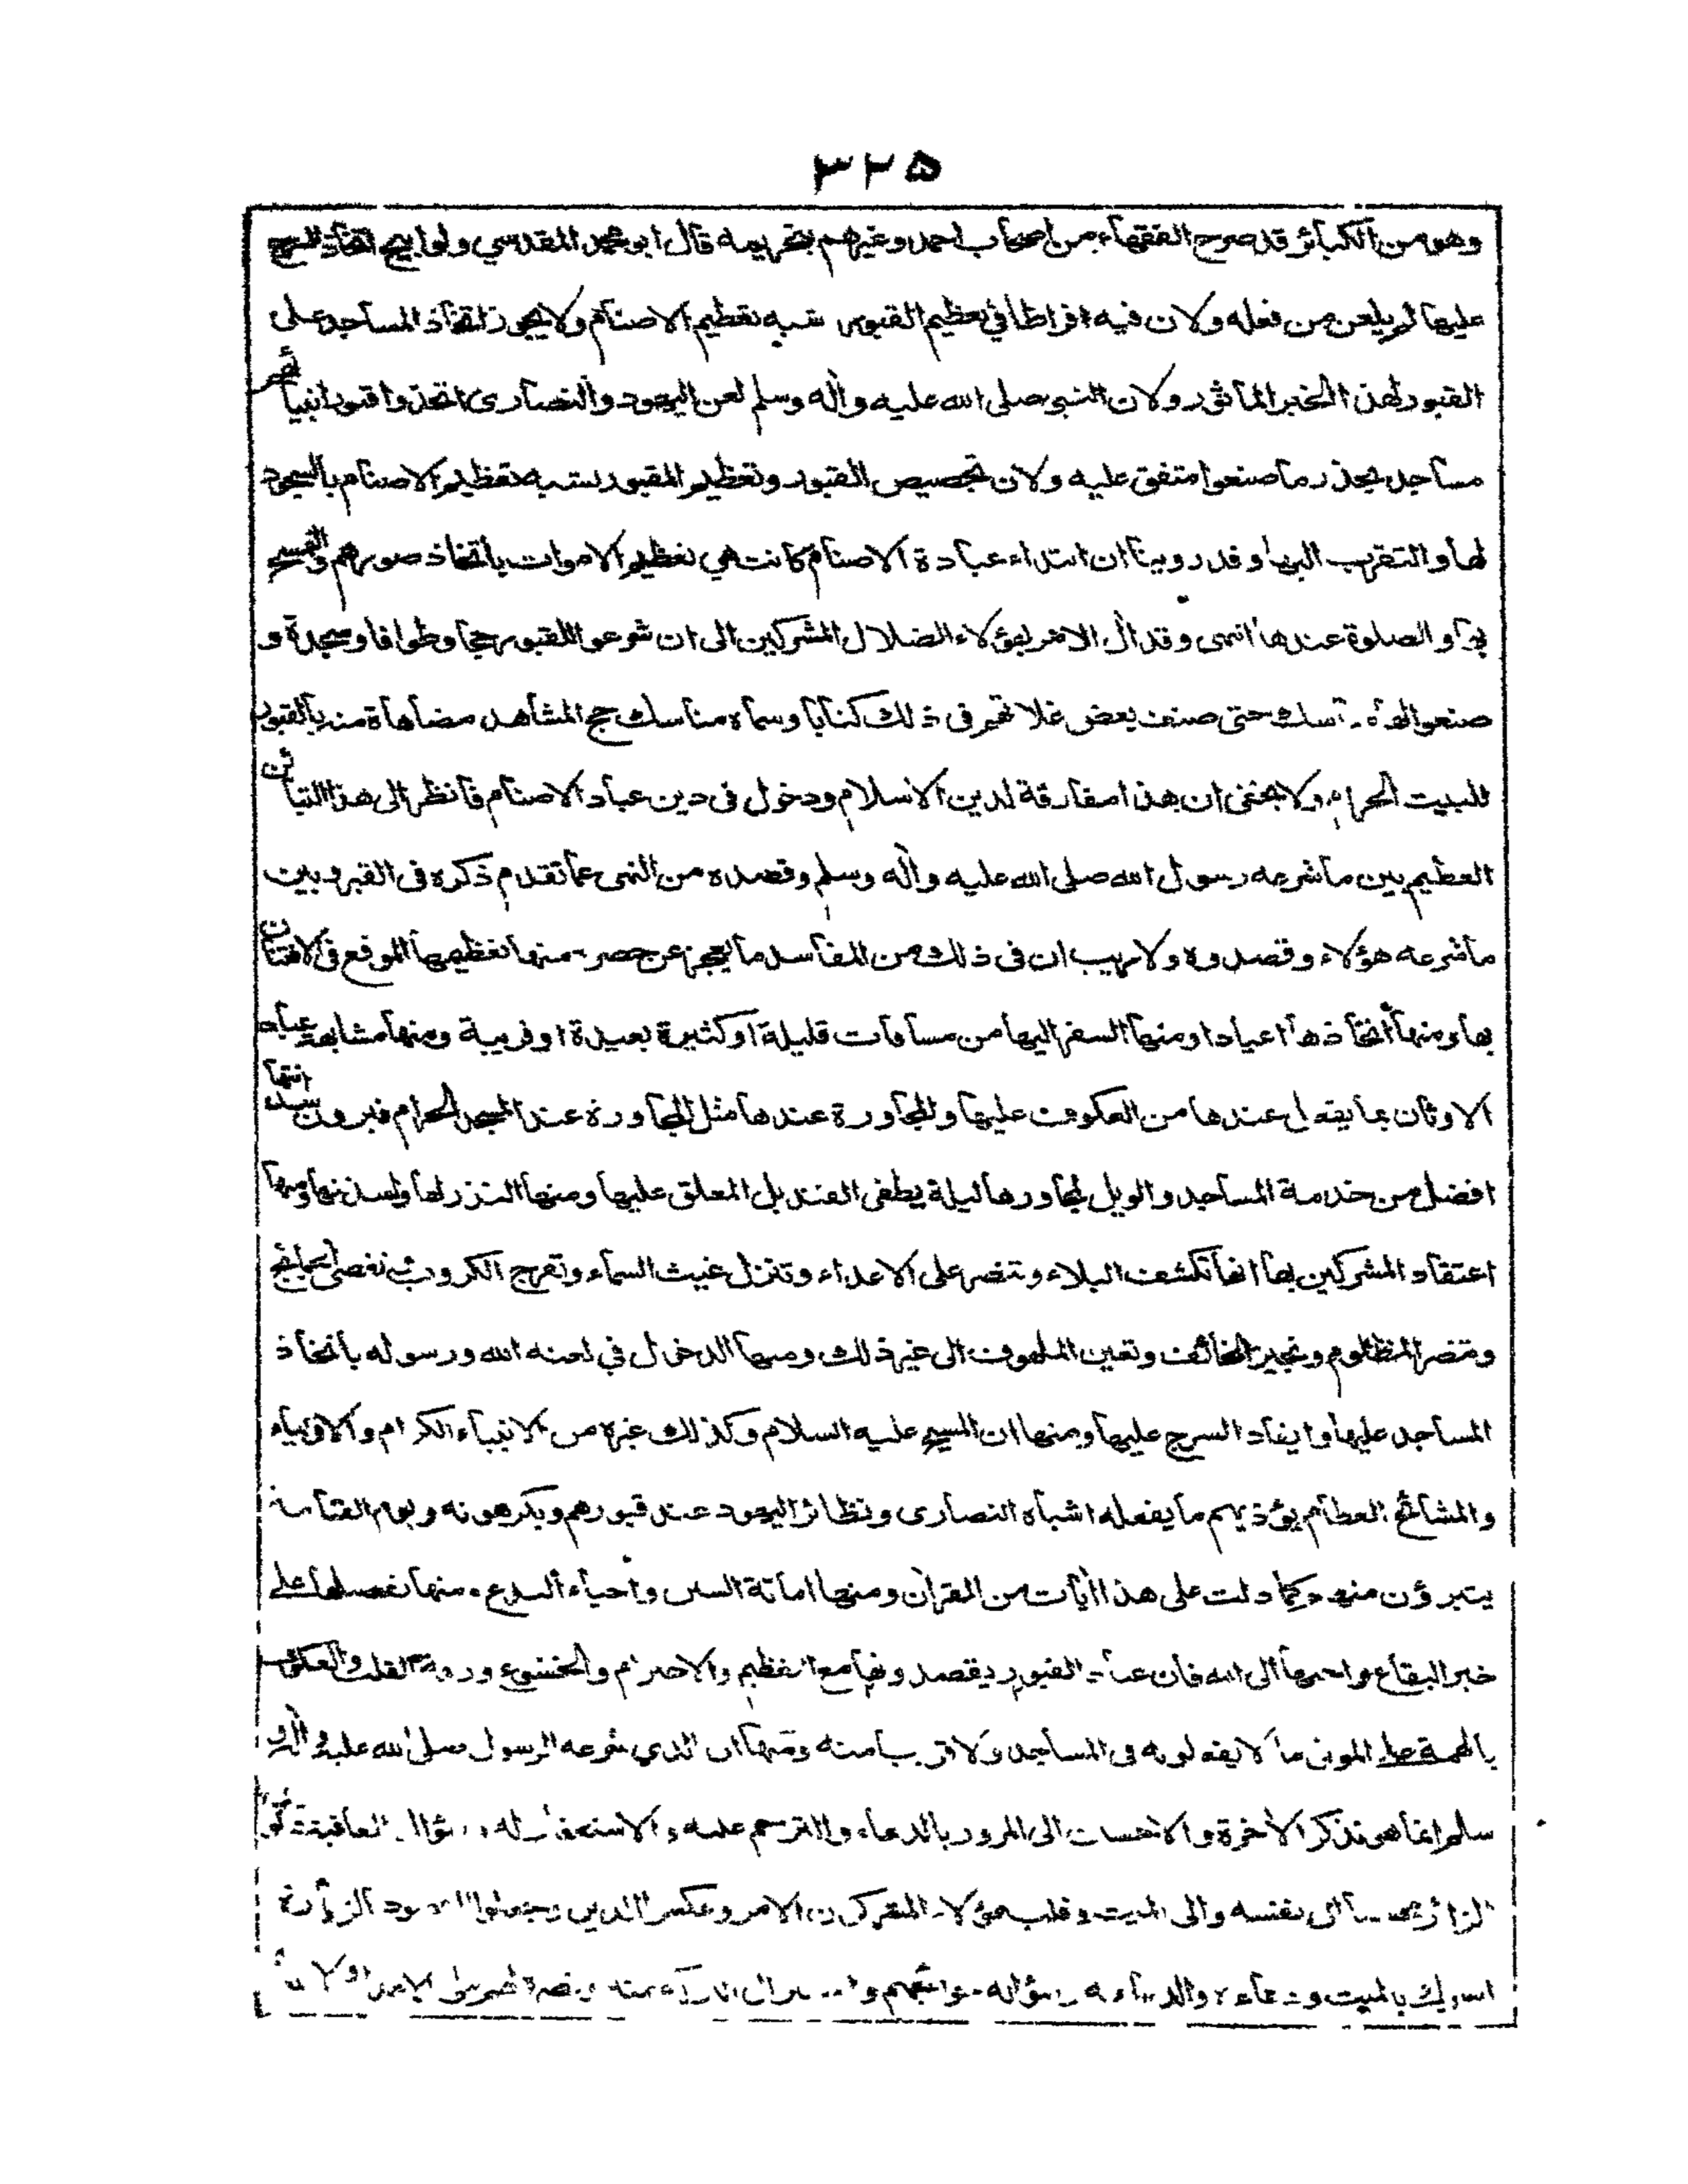 ٣٢٥
وهو من الكبائر قد صرح الفقهاء من اصحاب احمد وغيرهم بتحريمه قال ابو محمد المقدسي ولو ابيح اتخاذ السرج
عليها لم يلعن من فعله ولان فيه افراطا في تعظيم القبور شبه تعظيم الاصنام ولا يجوز اتخاذ المساجد على
القبور لهذا الخبر الماثور ولان النبي صلى الله عليه وآله وسلم لعن اليهود والنصارى اتخذوا قبور انبيائهم
مساجد يحذر ما صنعوا متفق عليه ولان تجصيص القبور وتعظيم المقبور يشبه تعظيم الاصنام بالسجود
لها والتقرب اليها وقد روينا ان ابتداء عبادة الاصنام كانت هي تعظيم الاموات باتخاذ صورهم والمسح
بها والصلوة عندها انتهى وقد آل الامر بهؤلاء الضلال المشركين الى ان شرعوا للقبور حجا وطوافا وسجدة و
صنعوا له مناسك حتى صنف بعض غلاتهم في ذلك كتابا وسماه مناسك حج المشاهد مضاهاة منه بالقبور
للبيت الحرام ولا يخفى ان هذا مفارقة لدين الاسلام ودخول في دين عباد الاصنام فانظر الى هذا التبائن
العظيم بين ما شرعه رسول الله صلى الله عليه وآله وسلم وقصده من النهى عما تقدم ذكره في القبر وبين
ما شرعه هؤلاء وقصدوه ولا ريب ان في ذلك من المفاسد ما يعجز عن حصره منها تعظيمها الموقع في الافتتان
بها ومنها اتخاذها اعيادا ومنها السفر اليها من مسافات قليلة او كثيرة بعيدة او قريبة ومنها مشابهة عباد
الاوثان بما يفعل عندها من العكوف عليها والمجاورة عندها مثل المجاورة عند المسجد الحرام فيرون سدانتها
افضل من خدمة المساجد والويل لمجاورها ليلة يطفى القنديل المعلق عليها ومنها النذر لها ولسدنتها ومنها
اعتقاد المشركين بها انها تكشف البلاء وتنصر على الاعداء وتنزل غيث السماء وتفرج الكروب وتقضى الحوائج
وتنصر المظلوم وتجير الخائف وتعين الملهوف الى غير ذلك ومنها الدخول في لعنه الله ورسوله باتخاذ
المساجد عليها وايقاد السرج عليها ومنها ان المسيح عليه السلام وكذلك غيره من الانبياء الكرام والاولياء
والمشائخ العظام يؤذيهم ما يفعله اشباه النصارى ونظائر اليهود عند قبورهم ويكرهونه ويوم القيامة
يتبرؤن منهم كما دلت على هذا آيات من القرآن ومنها اماتة السنن واحياء البدع ومنها تفضيلها على
خير البقاع واحبها الى الله فان عباد القبور يقصدونها مع التعظيم والاحترام والخشوع ورقة القلب والعكوف
بالهمة على الموتى ما لا يفعلونه في المساجد ولا قريبا منه ومنها ان الذي شرعه الرسول صلى الله عليه وآله و
سلم انما هي تذكر الآخرة والاحسان الى المزور بالدعاء والترحم عليه والاستغفار له وسؤال العافية
الزائر محسنا الى نفسه والى الميت وقلب هؤلاء المشركون الامر وعكسوا الدين وجعلوا المقصود الزيارة
بالميت ودعاءه والدعاء به وسؤاله حوائجهم